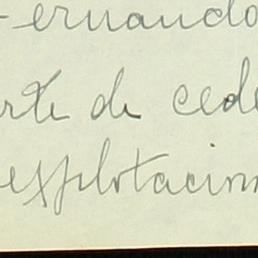 Fernando
rte de cede
explotacion